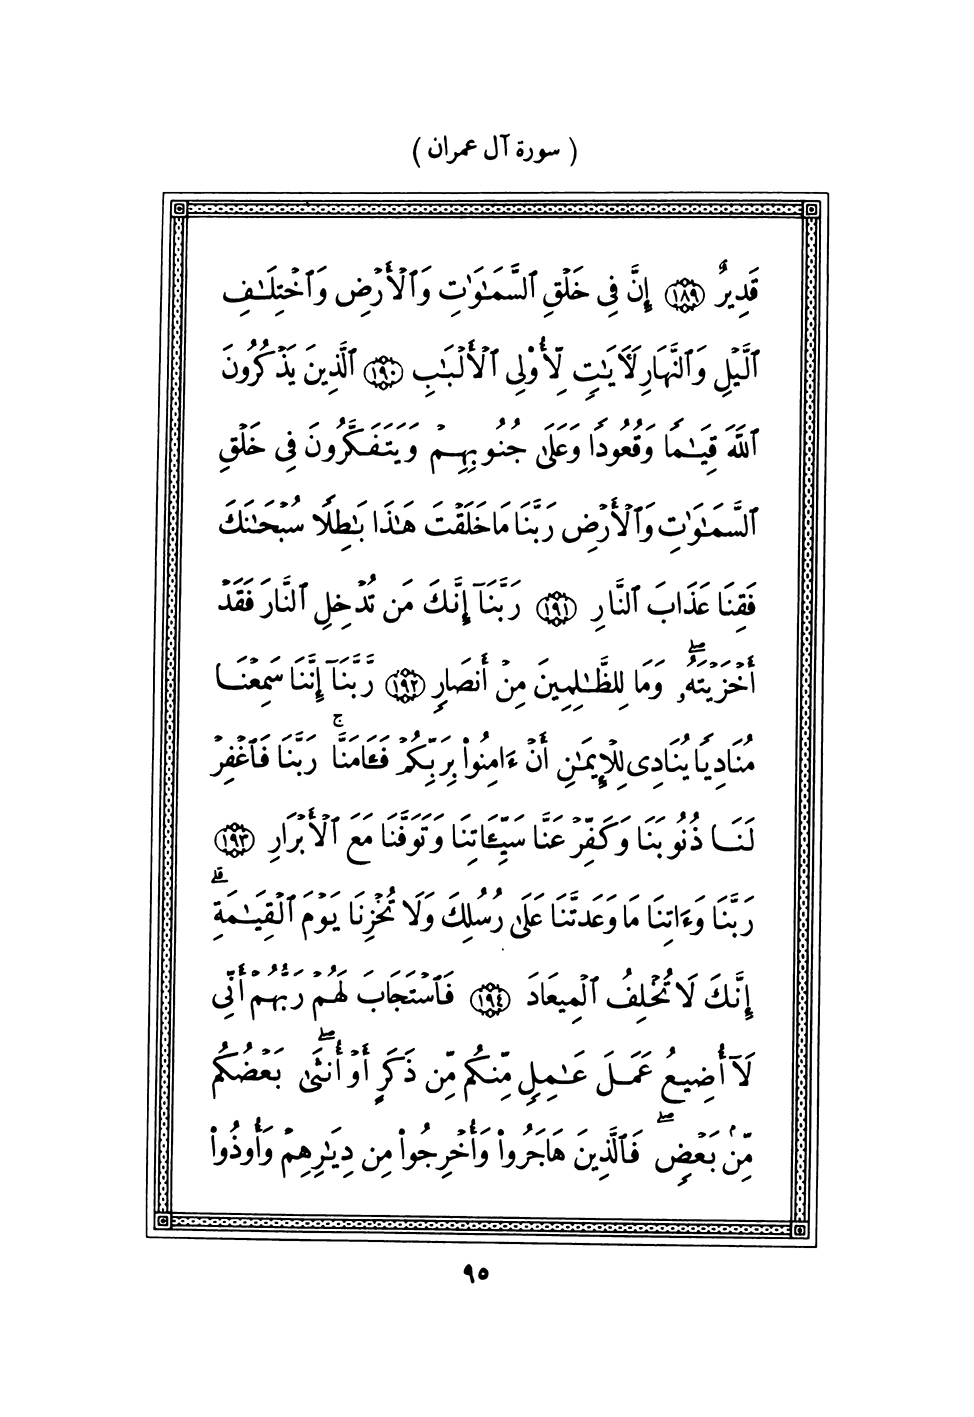 ( سورة آل عمران )
قَدِيرٌ ١٨٩ إِنَّ فِى خَلْقِ ٱلسَّمَٰوَٰتِ وَٱلْأَرْضِ وَٱخْتِلَٰفِ
ٱلَّيْلِ وَٱلنَّهَارِ لَءَايَٰتٍ لِّأُوْلِى ٱلْأَلْبَٰبِ ١٩٠ ٱلَّذِينَ يَذْكُرُونَ
ٱللَّهَ قِيَٰمًا وَقُعُودًا وَعَلَىٰ جُنُوبِهِمْ وَيَتَفَكَّرُونَ فِى خَلْقِ
ٱلسَّمَٰوَٰتِ وَٱلْأَرْضِ رَبَّنَا مَا خَلَقْتَ هَٰذَا بَٰطِلًا سُبْحَٰنَكَ
فَقِنَا عَذَابَ ٱلنَّارِ ١٩١ رَبَّنَآ إِنَّكَ مَن تُدْخِلِ ٱلنَّارَ فَقَدْ
أَخْزَيْتَهُۥ ۖ وَمَا لِلظَّٰلِمِينَ مِنْ أَنصَارٍ ١٩٢ رَّبَّنَآ إِنَّنَا سَمِعْنَا
مُنَادِيًا يُنَادِى لِلْإِيمَٰنِ أَنْ ءَامِنُوا۟ بِرَبِّكُمْ فَـَٔامَنَّا ۚ رَبَّنَا فَٱغْفِرْ
لَنَا ذُنُوبَنَا وَكَفِّرْ عَنَّا سَيِّـَٔاتِنَا وَتَوَفَّنَا مَعَ ٱلْأَبْرَارِ ١٩٣
رَبَّنَا وَءَاتِنَا مَا وَعَدتَّنَا عَلَىٰ رُسُلِكَ وَلَا تُخْزِنَا يَوْمَ ٱلْقِيَٰمَةِ ۗ
إِنَّكَ لَا تُخْلِفُ ٱلْمِيعَادَ ١٩٤ فَٱسْتَجَابَ لَهُمْ رَبُّهُمْ أَنِّى
لَآ أُضِيعُ عَمَلَ عَٰمِلٍ مِّنكُم مِّن ذَكَرٍ أَوْ أُنثَىٰ ۖ بَعْضُكُم
مِّنۢ بَعْضٍ ۖ فَٱلَّذِينَ هَاجَرُوا۟ وَأُخْرِجُوا۟ مِن دِيَٰرِهِمْ وَأُوذُوا۟
٩٥